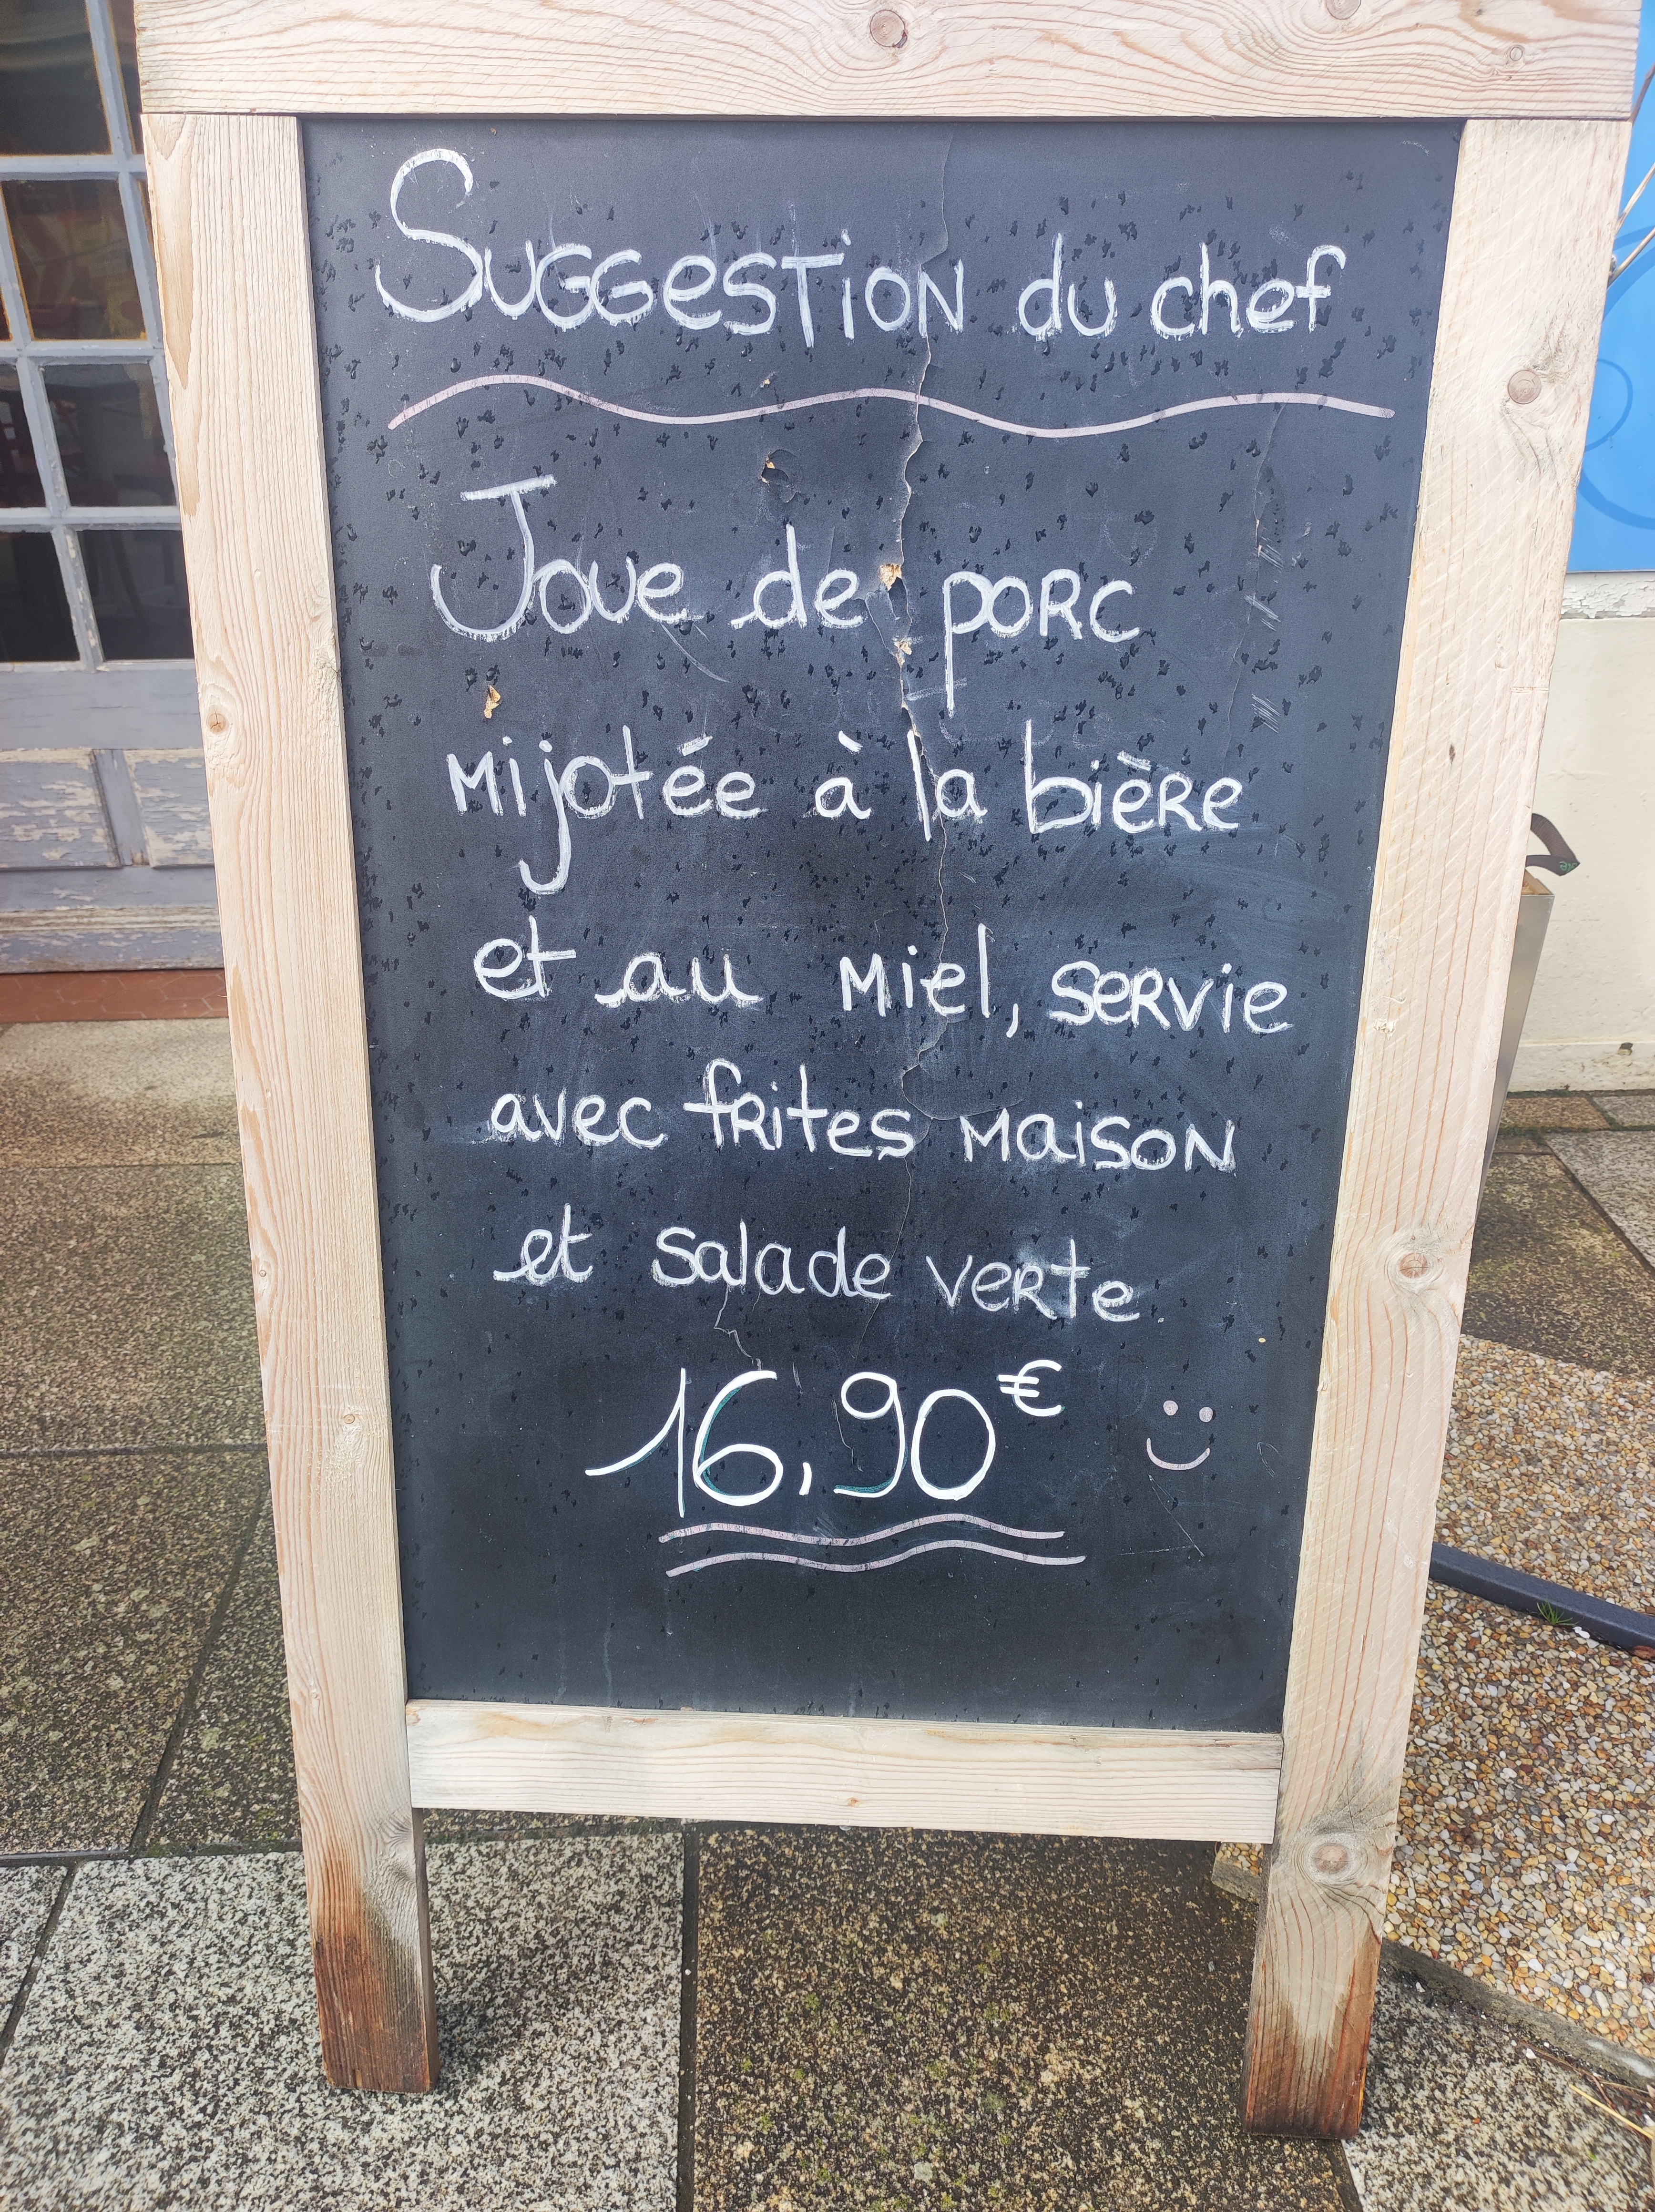 Suggestion du chef
Joue de porc
mijotée à la bière
et au miel, servie
avec frites maison
et salade verte.
16,90€